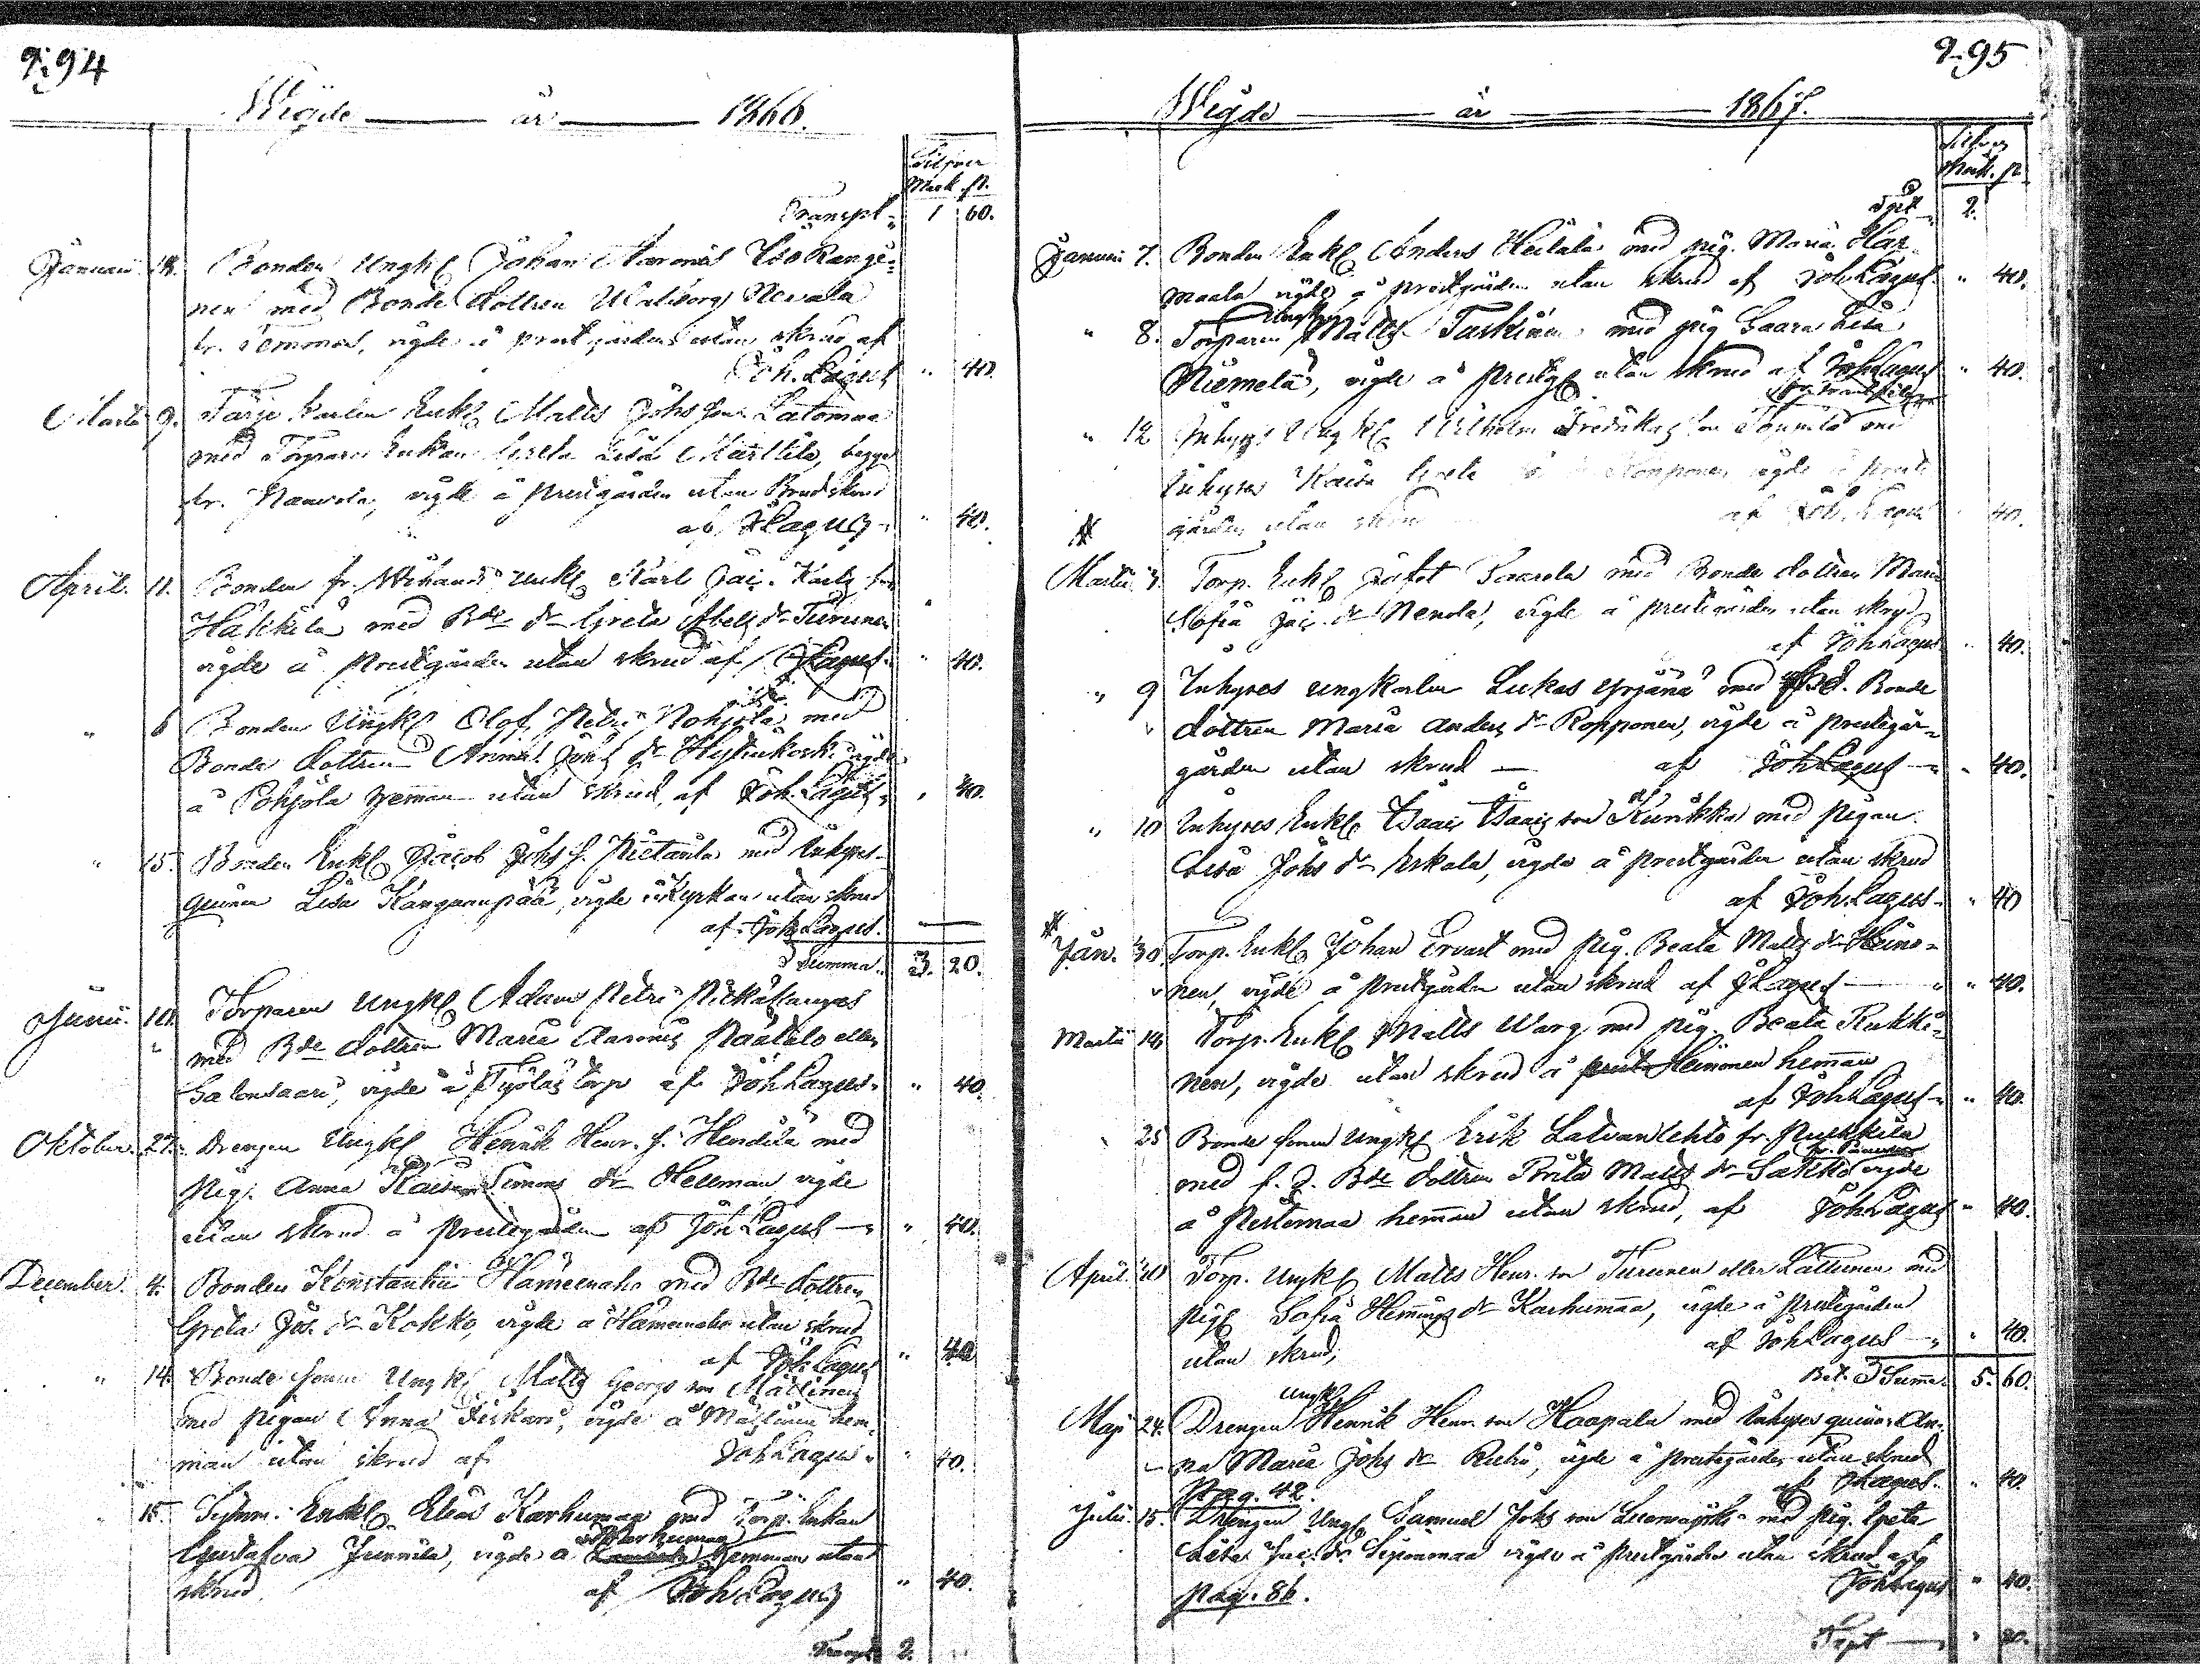 994
Wigde är 1866.
Silfver
Mark. p.
Transpt 1 60.
Januari 14. Bonden Ungkl Johan Aaronis Iso Rangi-
nen med Bonde dottren Walborg Nevala
fr. Temmes, vigde å prestgården utan skrud af
Joh. Lagus " 40.
Martii 9. Färje karlen Enkl Matts Johs son Latomaa
med Torpare Enkan Greta Lisa Marttila, begge
fr. vigde å prestgården utan Brudskrud
af JLagus " 40.
April. 11. Bonden fr. Wihandi Enkl Karl Jac. Karls son
Hakkila med Bde dr Greta Abels dr Turunen
vigde å prestgården utan skrud af JLagus " 40.
" 6 Bonden Ungkl Olof Petri Pohjola med
Bonde dottren Anna Johs dr Hyttinkoski vigde
å Pohjola hemman utan skrud, af Joh. Lagus " 40.
" 15. Bonden Enkl Jacob Johs s. Pietarila med Inhyses-
quinnan Lisa Kangaanpää, vigde i Kyrkan utan skrud
af Joh Lagus. —
Summa. 3. 20.
Junii. 10. Torparen Ungkl Adam Petri Pitkäkangas
med Bde dottren Maria Aaronis Paatalo eller
Salonsaari, vigde å Työläs torp af Joh Lagus. " 40.
Oktober. 27. Drengen Ungkl Henrik Henr. s. Hendilä med
Pig. Anna Kaisa Simons dr Hellman vigde
utan skrud å prestegården af Joh Lagus " 40.
December. 4. Bonden Konstantin Hämeenaho med Bde dottren
Greta Jos. dr Kokko, vigde å Hämeenaho utan skrud
af Joh Lagus " 40
" 14. Bonde sonen Ungkl Matts Georgs son Mattinen
med pigan Anna Fiskari, vigde å Mattinen hem-
man utan skrud af Joh Lagus " 40.
" 15. Enkl Elias Karhumaa med Torp. Enkan
Gustafva Junnila, vigde å Karhumaa hemman utan
skrud af Joh Lagus " 40.
Transpt 2.
995
Wigde är 1867.
Silfver
Mark. p.
Tpt 2.
Januari 7. Bonden Enkl Anders Heikkilä med pig. Maria Har-
maala vigde å prestgården utan skrud af Joh Lagus " 40.
" 8. Torparen Ungkl Matts Taskinen med pig Saara Lisa
Niemelä, vigde å prestg utan skrud af Joh Lagus " 40.
" 12 Inhyses Ungkl Wilhelm Fredriks son Tormilä med
Inhyses Kaisa Greta Komponen vigde å prest-
gården utan skrud af Joh. Lagus " 40.
Martii 3. Torp. Enkl Jafet Saarela med Bonde dottren Maria
Sofia Jac. dr Nevala, vigde å prestegården utan skrud
af Joh Lagus " 40.
" 9 Inhyses ungkarlen Lukas Yrjänä med f.d. Bonde
dottren Maria Anders dr Ropponen, vigde å prestegår-
gården utan skrud — af Joh Lagus " 40.
" 10 Inhyses Enkl Isaac Isaacs son Kurikka med Pigan
Lisa Johs dr Erkala, vigde å prestgården utan skrud
af Joh Lagus " 40
Jan. 30. Torp. Enkl Johan Ervast med Pig. Beata Matts dr Heino-
nen, vigde å prestgården utan skrud af JLagus " 40.
Martii 14 Torp. Enkl Matts Warg med pig. Beata Kukki-
nen, vigde utan skrud å prest Heinonen hemman
af Joh Lagus " 40.
" 25 Bonde sonen Ungkl Erik Latvanlehto fr. Pulkkila
med f.d. Bde dottren Brita Matts dr Sakko vigde
å Pertomaa hemman utan skrud, af Joh Lagus " 40.
April. 20 Torp. Ungkl Matts Henr. son Turunen eller Lattunen med
pig Sofia Hemmings dr Karhumaa, vigde å prestegården
utan skrud, af Joh Lagus " 40.
Bet. Summa. 5. 60.
Maji 24. Drengen Ungkl Henrik Henr. son Haapala med Inhyses quinnan An-
na Maria Johs dr Riehi, vigde å prestegården utan skrud
Pag. 42. af JLagus. " 40.
Julii. 15. Drengen Ungkl Samuel Johs son med pig. Greta
Lisa Jac. dr vigde å prestgården utan skrud af
Pag. 86. Joh Lagus " 40.
Tspt " 80.